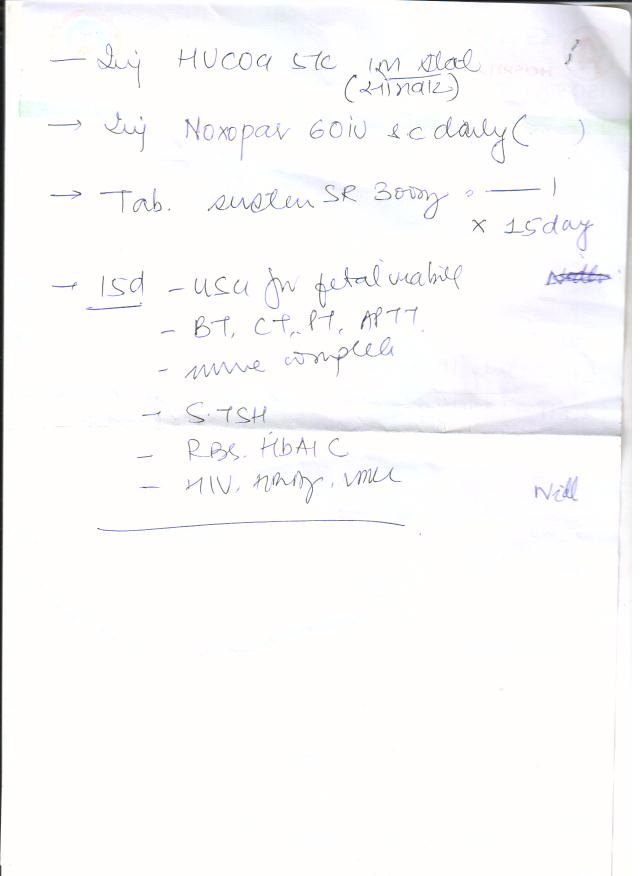 — Inj HUCOG 5TC IM Stat
(સોમવાર)
→ Inj Noxopar 60iu sc daily ( )
→ Tab. susten SR 300mg 0 —— 1
x 15day
→ 15d – USG for fetal viability
– BT, CT, PT, APTT
– urine complete
– S. TSH
– RBS. HbA1C
– HIV. HBsAg.